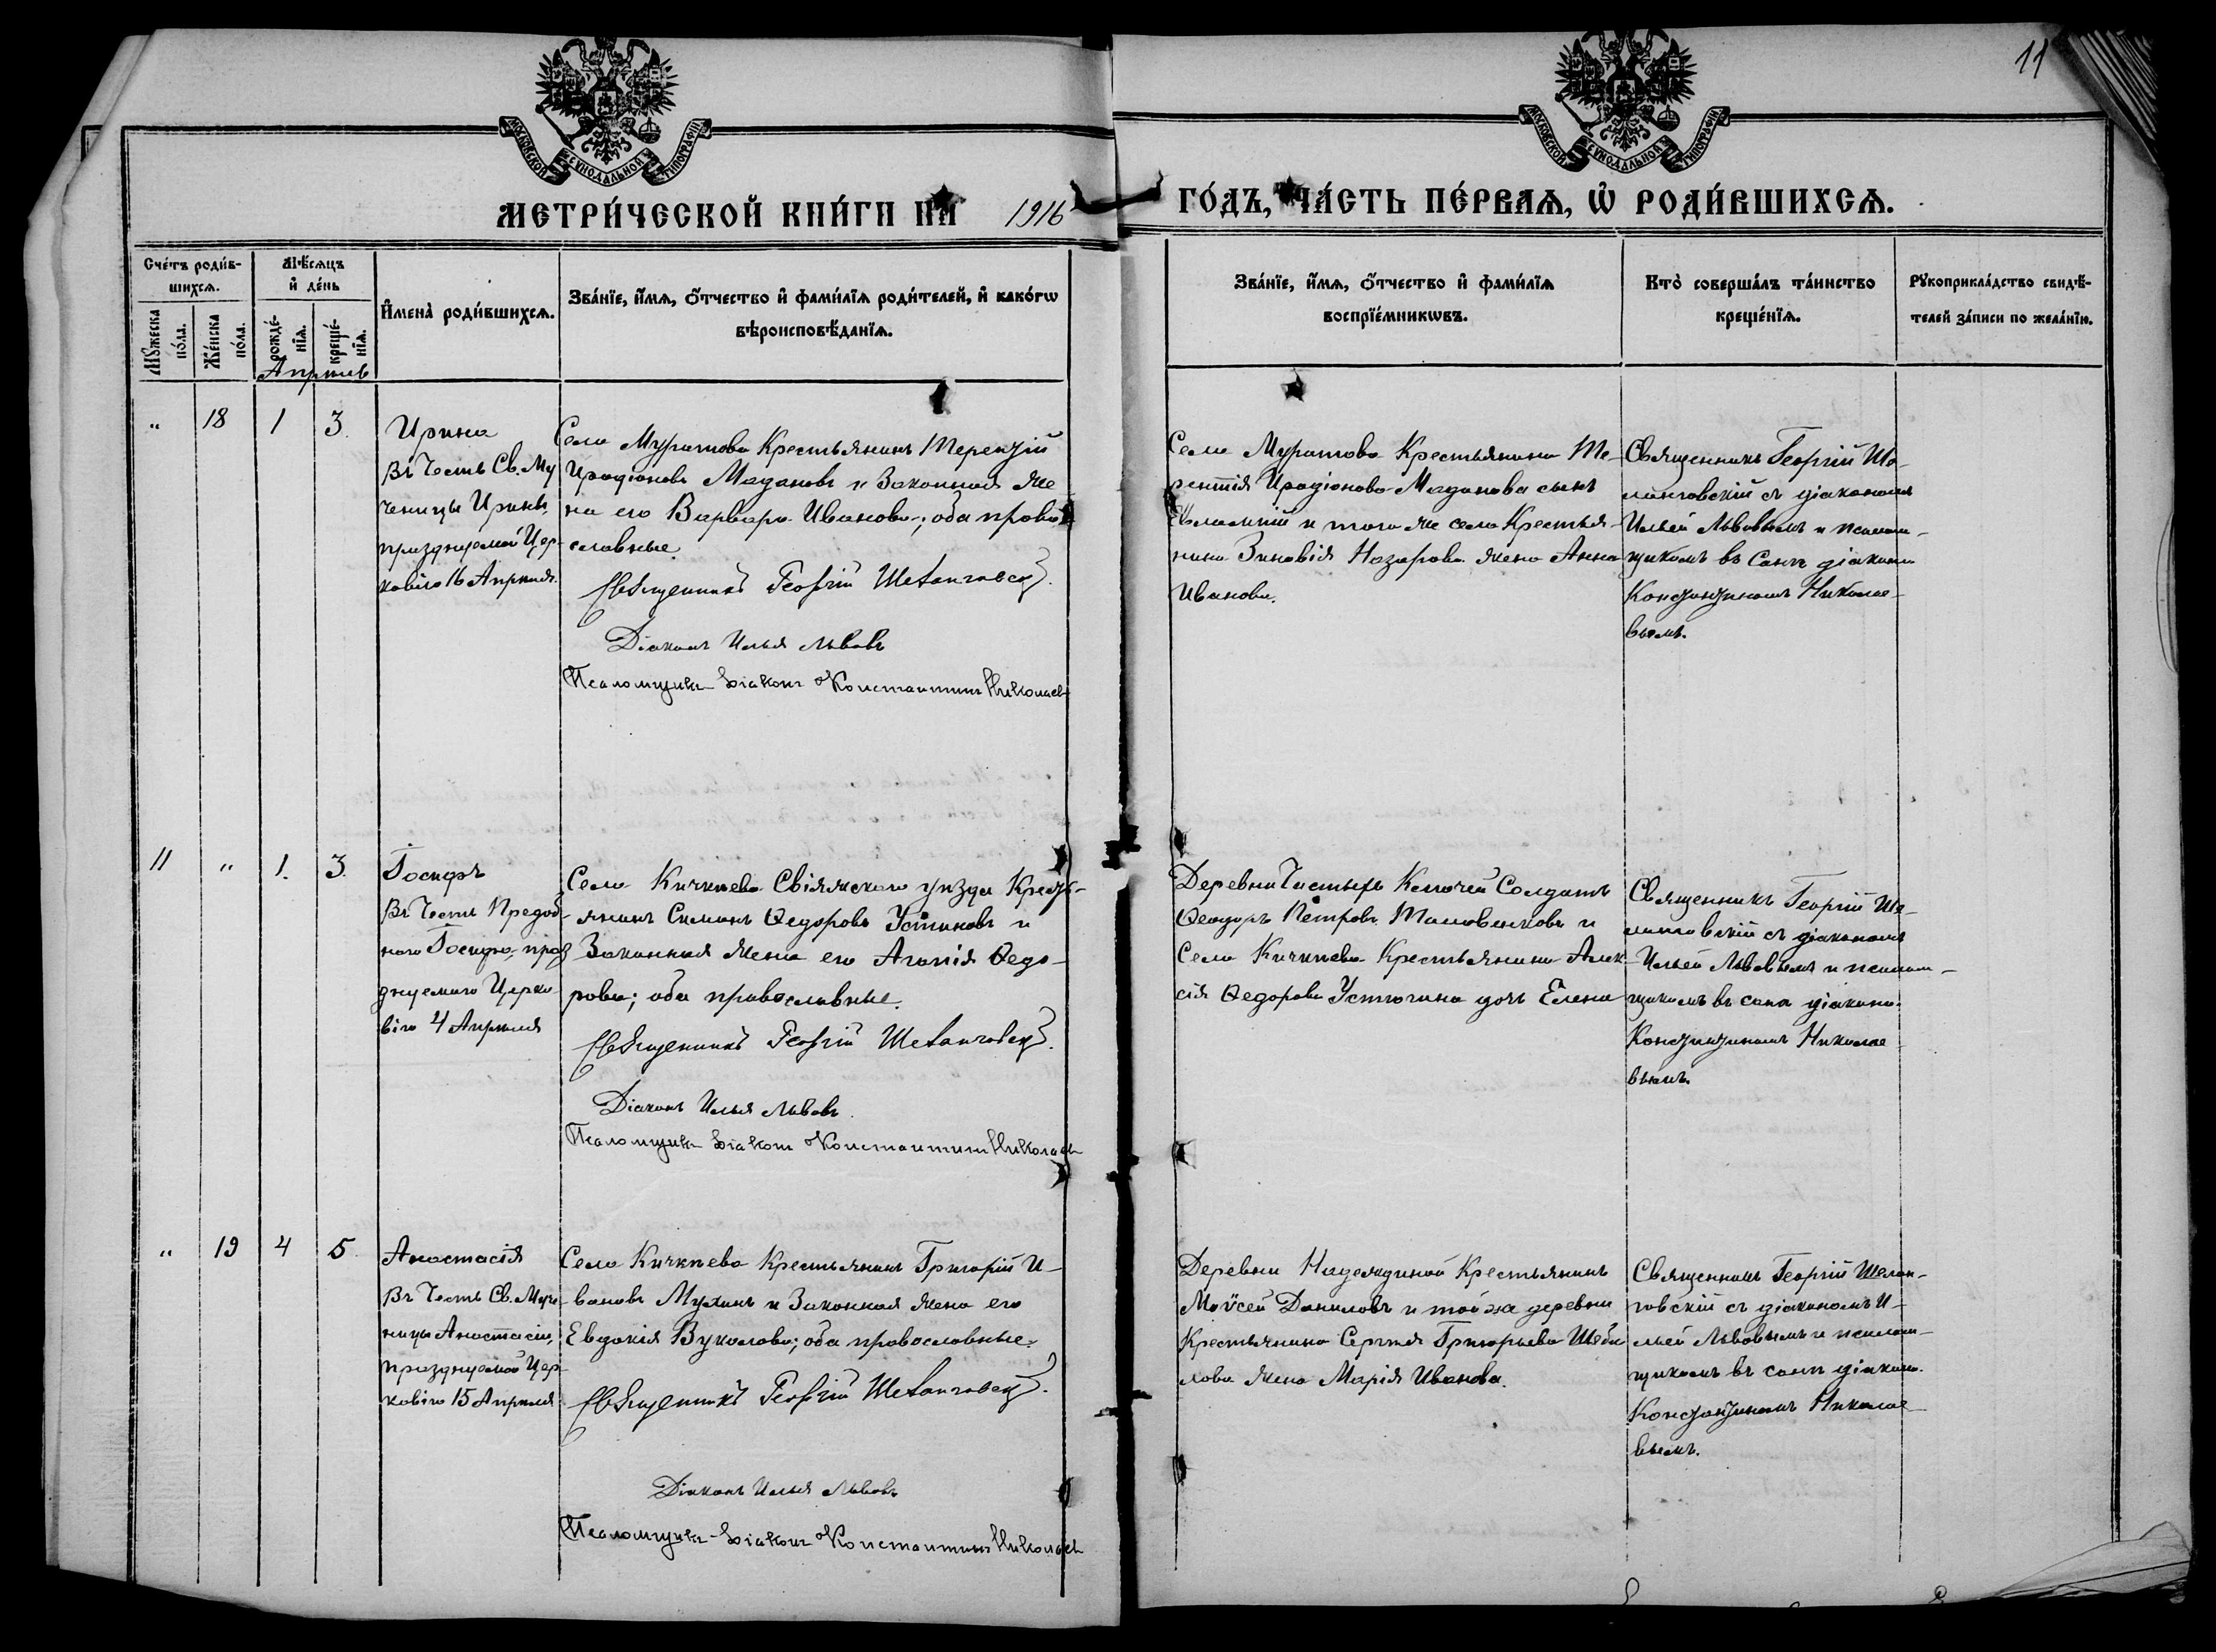 11
МОСКОВСКОЙ СѴНОДАЛЬНОЙ ТИПОГРАФІИ
МОСКОВСКОЙ СѴНОДАЛЬНОЙ ТИПОГРАФІИ
МЕТРИ́ЧЕСКОЙ КНИ́ГИ НА 1916 ГО́ДЪ, ЧА́СТЬ ПЕ́РВАѦ, Ѡ҆ РОДИ́ВШИХСѦ.
Сче́тъ роди́в-
шихсѧ.
Мꙋ́жеска по́ла.
Же́нска по́ла.
Мѣ́сѧцъ
и҆ де́нь
рожде́-
нїѧ.
креще́-
нїѧ.
И҆мена̀ роди́вшихсѧ.
Зва́нїе, и҆́мѧ, ѻ҆́тчество и҆ фами́лїѧ роди́телей, и҆ како́гѡ
вѣроисповѣ́данїѧ.
Зва́нїе, и҆́мѧ, ѻ҆́тчество и҆ фами́лїѧ
воспрїе́мникѡвъ.
Кто̀ соверша́лъ та́инство
креще́нїѧ.
Рꙋкоприкла́дство свидѣ́-
телей за́писи по жела́нїю.
Апрѣль
" 18 1 3.
Ирина
Въ Честь Св. Му
ченицы Ирины,
празднуемой Цер-
ковію 16 Апрѣля.
Села Муратова Крестьянинъ Терентій
Иродіоновъ Мадановъ и Законная же-
на его Варвара Иванова; оба право-
славные.
Священникъ Георгій Шеланговскій.
Діаконъ Илья Львовъ
Псаломщикъ-Діаконъ Константинъ Николаевъ
Села Муратова Крестьянина Те-
рентія Иродіонова Маданова сынъ
Евлампій и того же села Крестья-
нина Зиновія Назарова жена Анна
Иванова.
Священникъ Георгій Ше-
ланговскій съ діакономъ
Ильей Львовымъ и псалом-
щикомъ въ санѣ діакона
Константиномъ Николае-
вымъ.
11 " 1. 3.
Іосифъ
Въ Честь Преподоб-
наго Іосифа, праз
днуемаго Церко-
вію 4 Апрѣля
Села Кичкѣева Свіяжскаго уѣзда Кресть-
янинъ Симонъ Ѳедоровъ Устиновъ и
Законная жена его Агапія Ѳедо-
рова; оба православные.
Священникъ Георгій Шеланговскій.
Діаконъ Илья Львовъ.
Псаломщикъ-Діаконъ Константинъ Николаевъ
Деревни Чистыхъ Ключей Солдатъ
Ѳеодоръ Петровъ и
Села Кичкѣева Крестьянина Алек-
сія Ѳедорова Устюгина дочь Елена
Священникъ Георгій Ше-
ланговскій съ діакономъ
Ильей Львовымъ и псалом-
щикомъ въ санѣ діакона
Константиномъ Николае-
вымъ.
" 19 4 5.
Анастасія
Въ Честь Св. Муче-
ницы Анастасіи,
празднуемой Цер-
ковію 15 Апрѣля
Села Кичкѣева Крестьянинъ Григорій И-
вановъ Мухинъ и Законная жена его
Евдокія Вуколова; оба православные.
Священникъ Георгій Шеланговскій.
Діаконъ Илья Львовъ
Псаломщикъ-Діаконъ Константинъ Николаевъ
Деревни Надеждиной Крестьянинъ
Моѵсей Даниловъ и той же деревни
Крестьянина Сергѣя Григорьева Шеба
лова жена Марія Иванова.
Священникъ Георгій Шелан-
говскій съ діакономъ И-
льей Львовымъ и псалом-
щикомъ въ санѣ діакона
Константиномъ Николае-
вымъ.